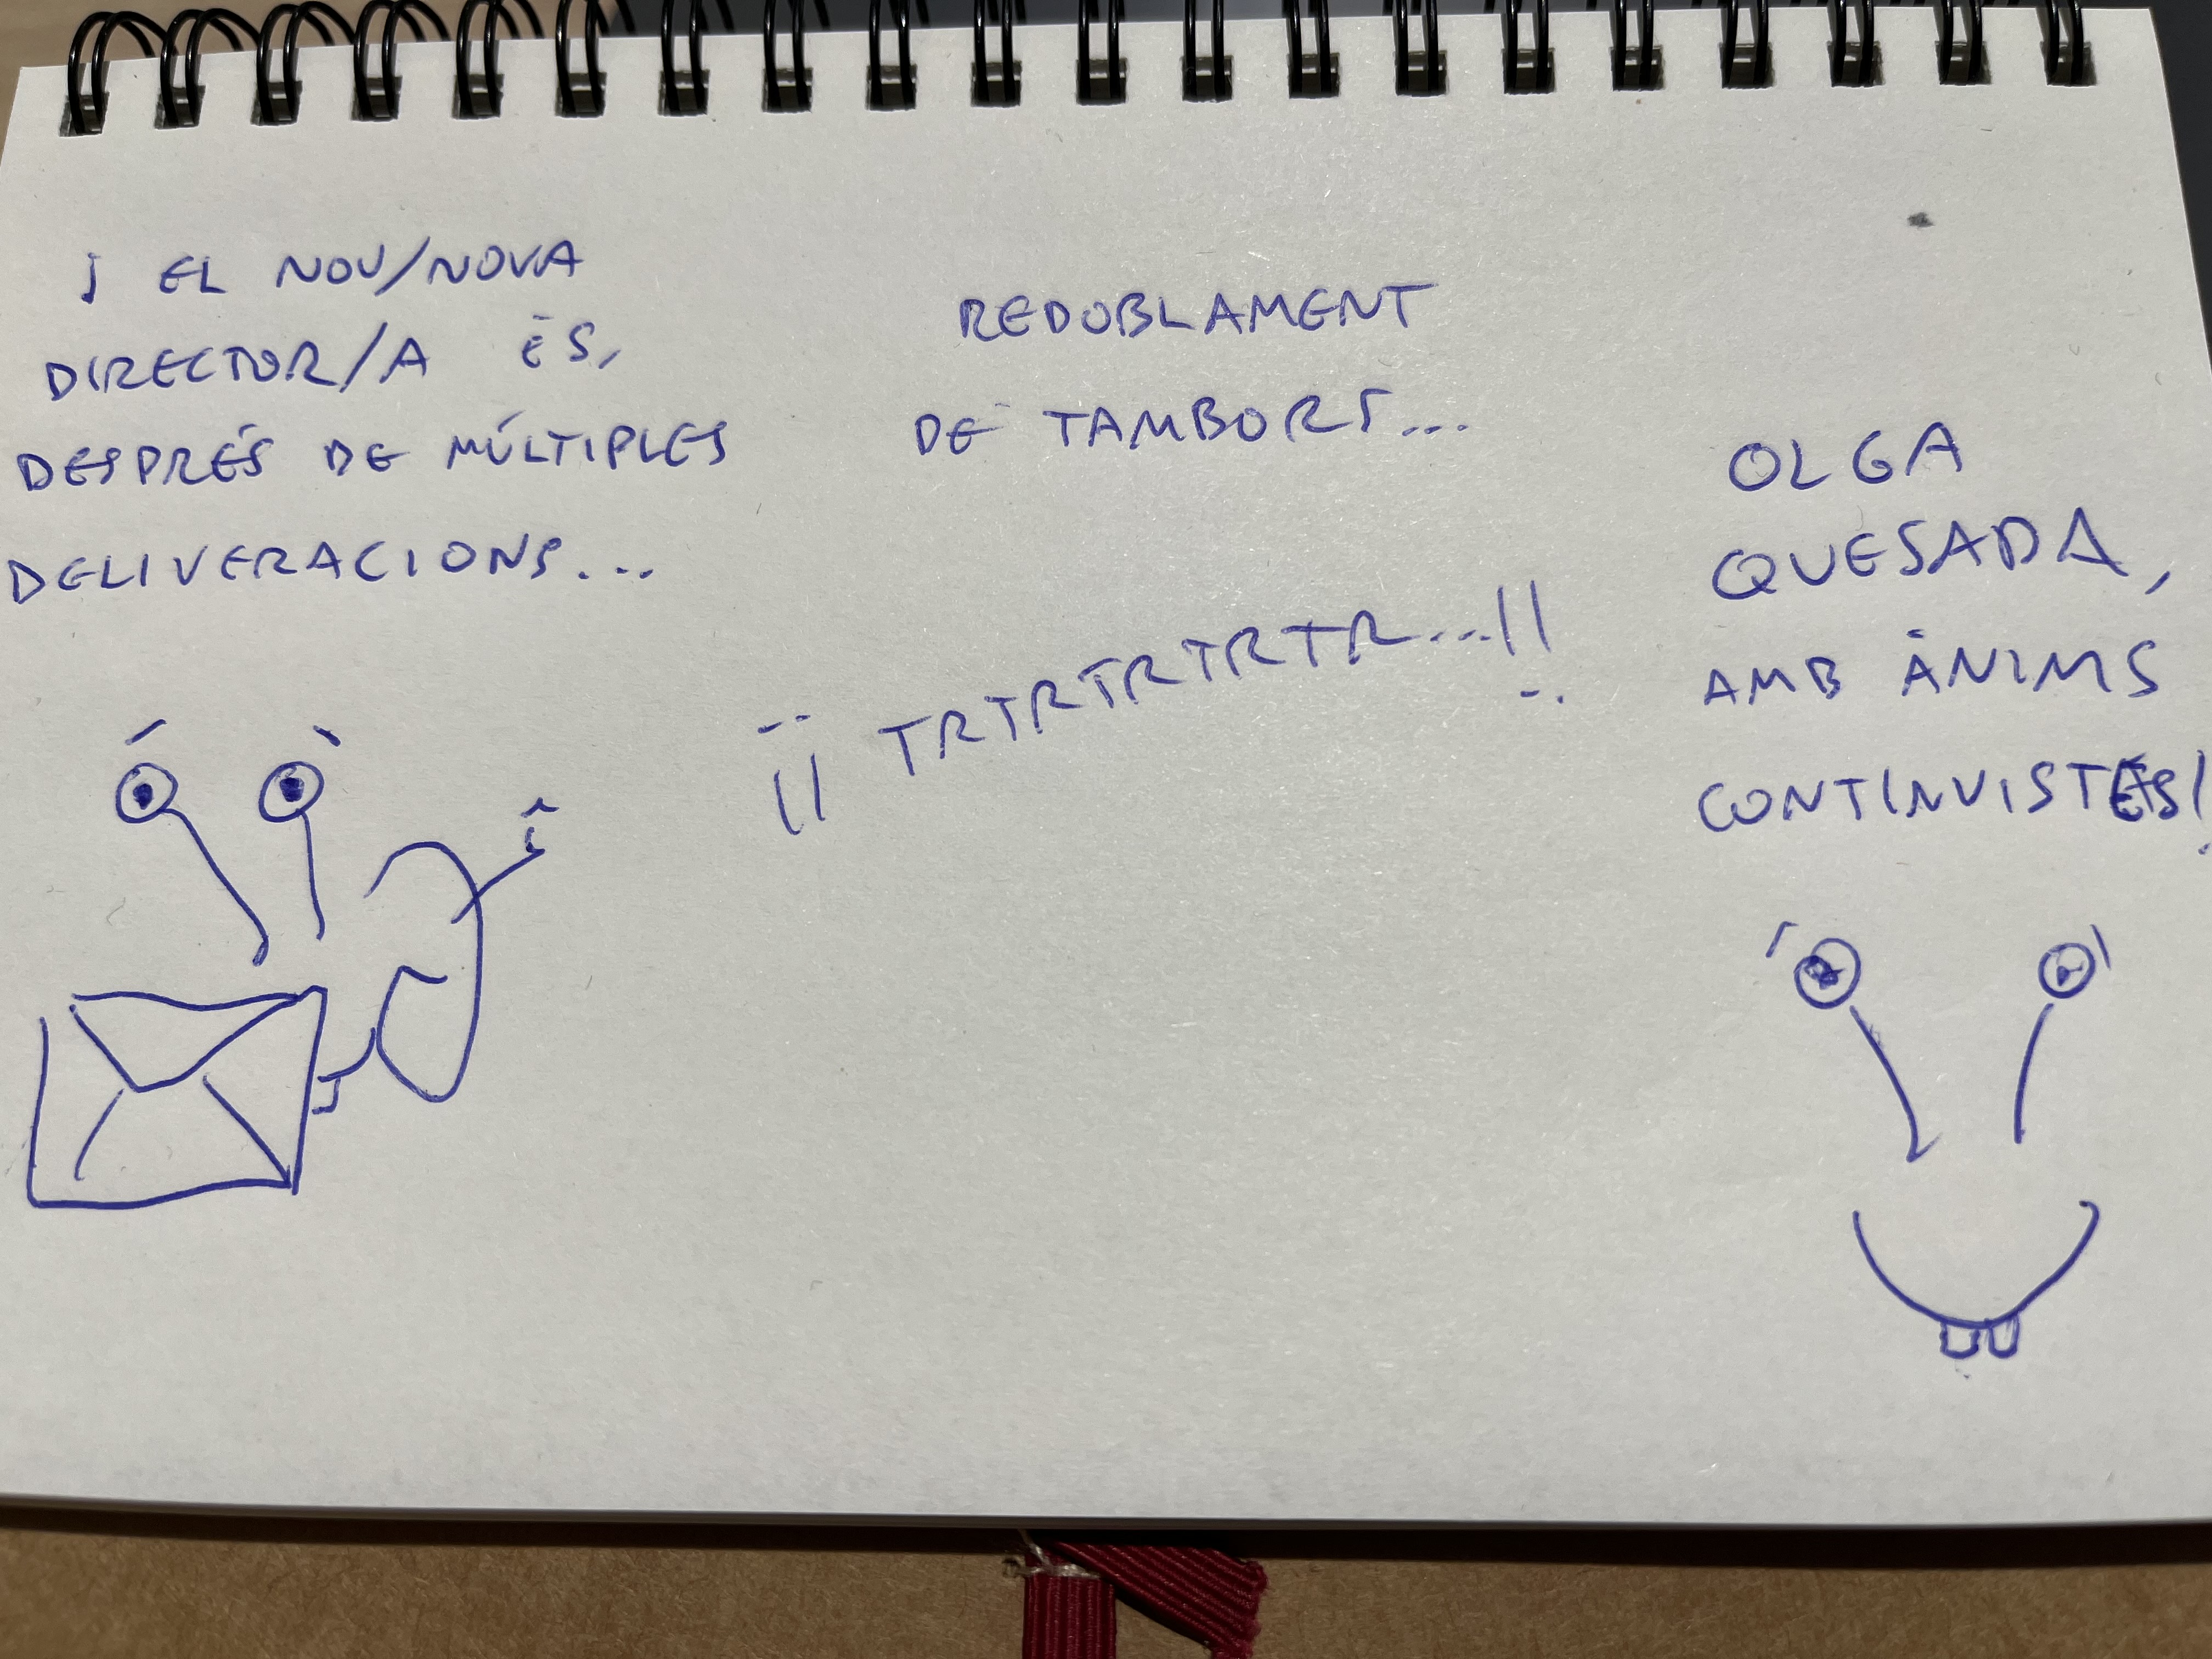 I EL NOU/NOVA
DIRECTOR/A ÉS,
DESPRÉS DE MÚLTIPLES
DELIVERACIONS...
REDOBLAMENT
DE TAMBORS...
¡¡ TRTRTRTRTRTR...!!
OLGA
QUESADA,
AMB ÀNIMS
CONTINUISTES!